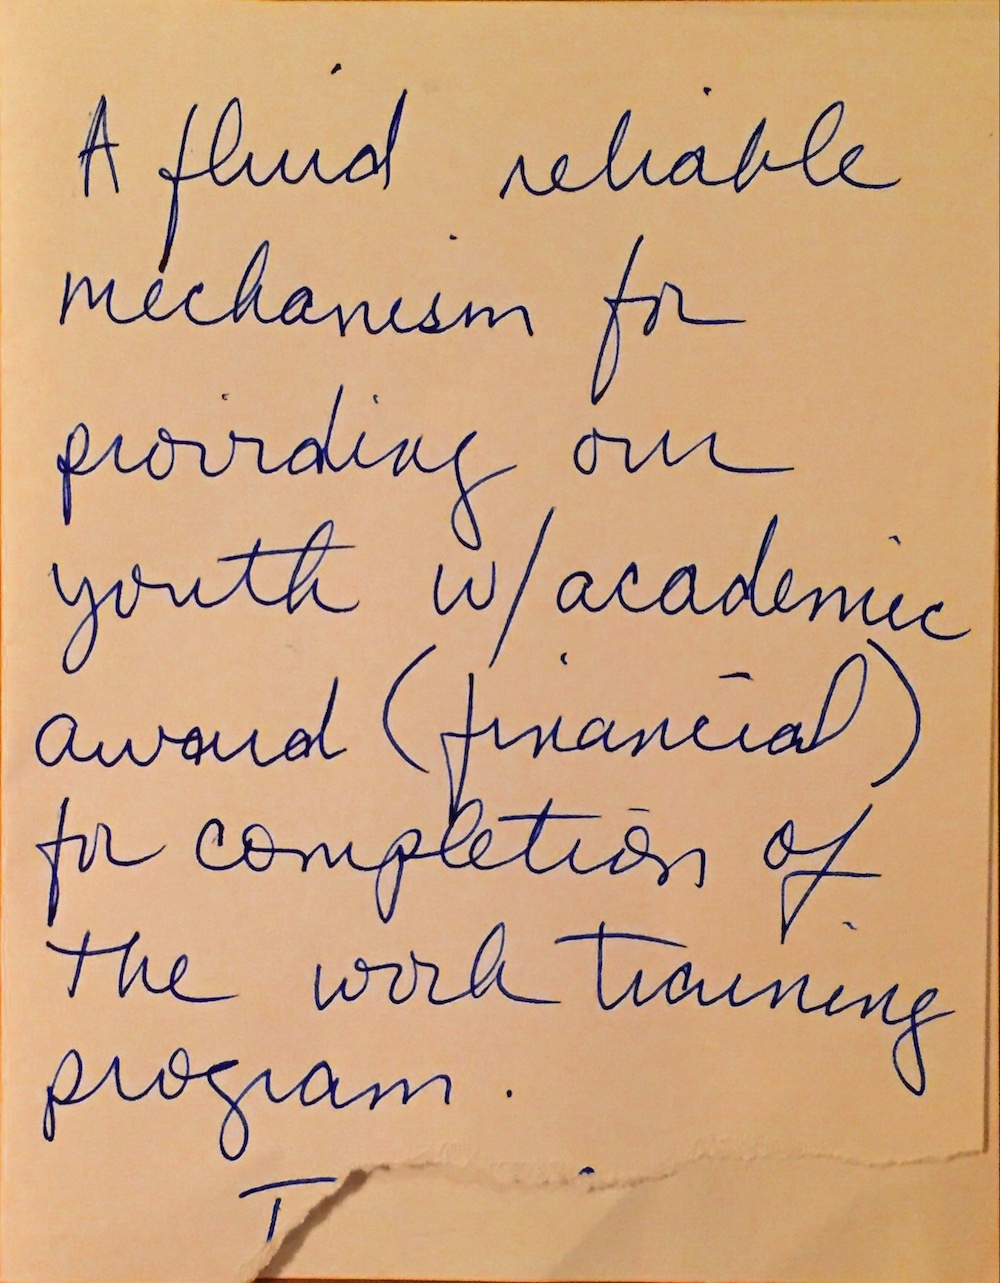 A fluid reliable
mechanism for
providing our
youth w/academic
award (financial)
for completion of
the work training
program.